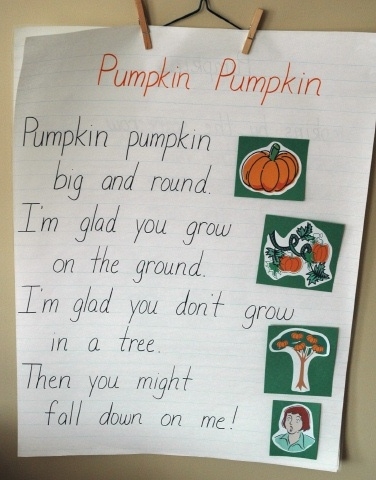 Pumpkin Pumpkin
Pumpkin pumpkin
big and round.
I'm glad you grow
on the ground.
I'm glad you don't grow
in a tree.
Then you might
fall down on me!